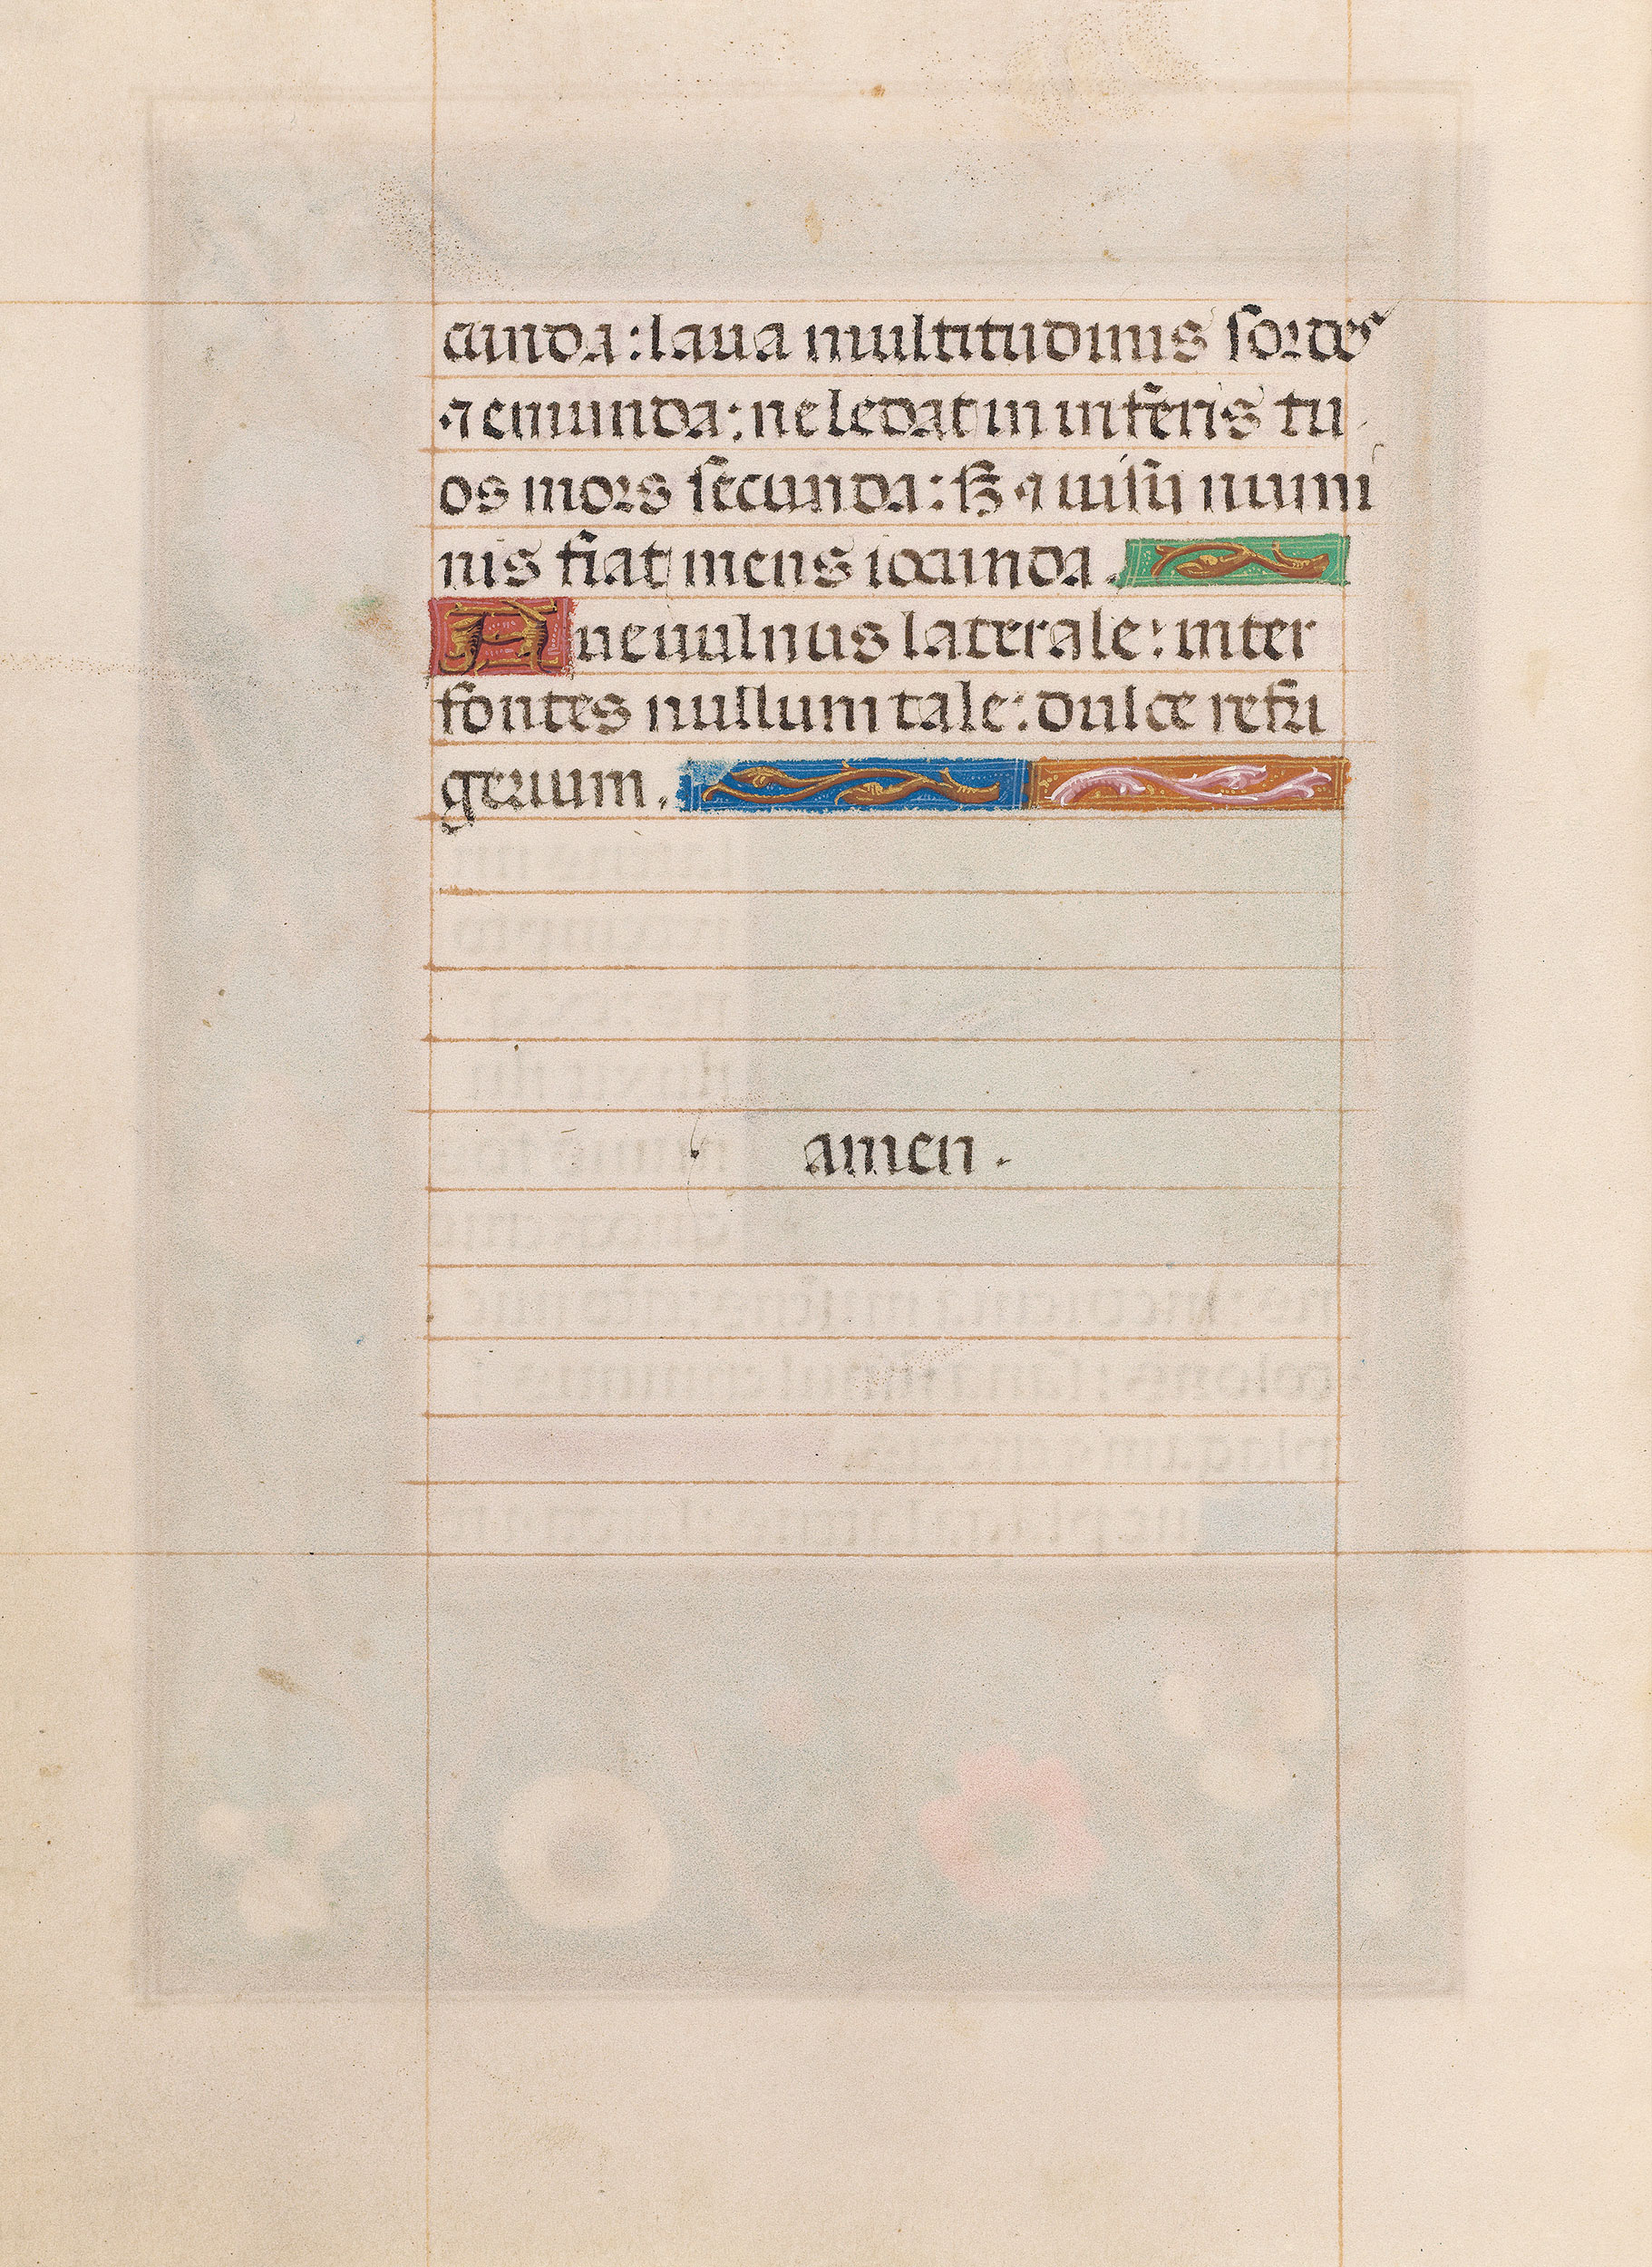 cunda : laua multitudinis sordes
⁊ emunda : ne ledat in inferis tu
os mors secunda : sꝫ ⁊ uisu numi
nis fiat mens iocunda .
Aue uulnus laterale : inter
fontes nullum tale : dulce refri
gerium .
amen .